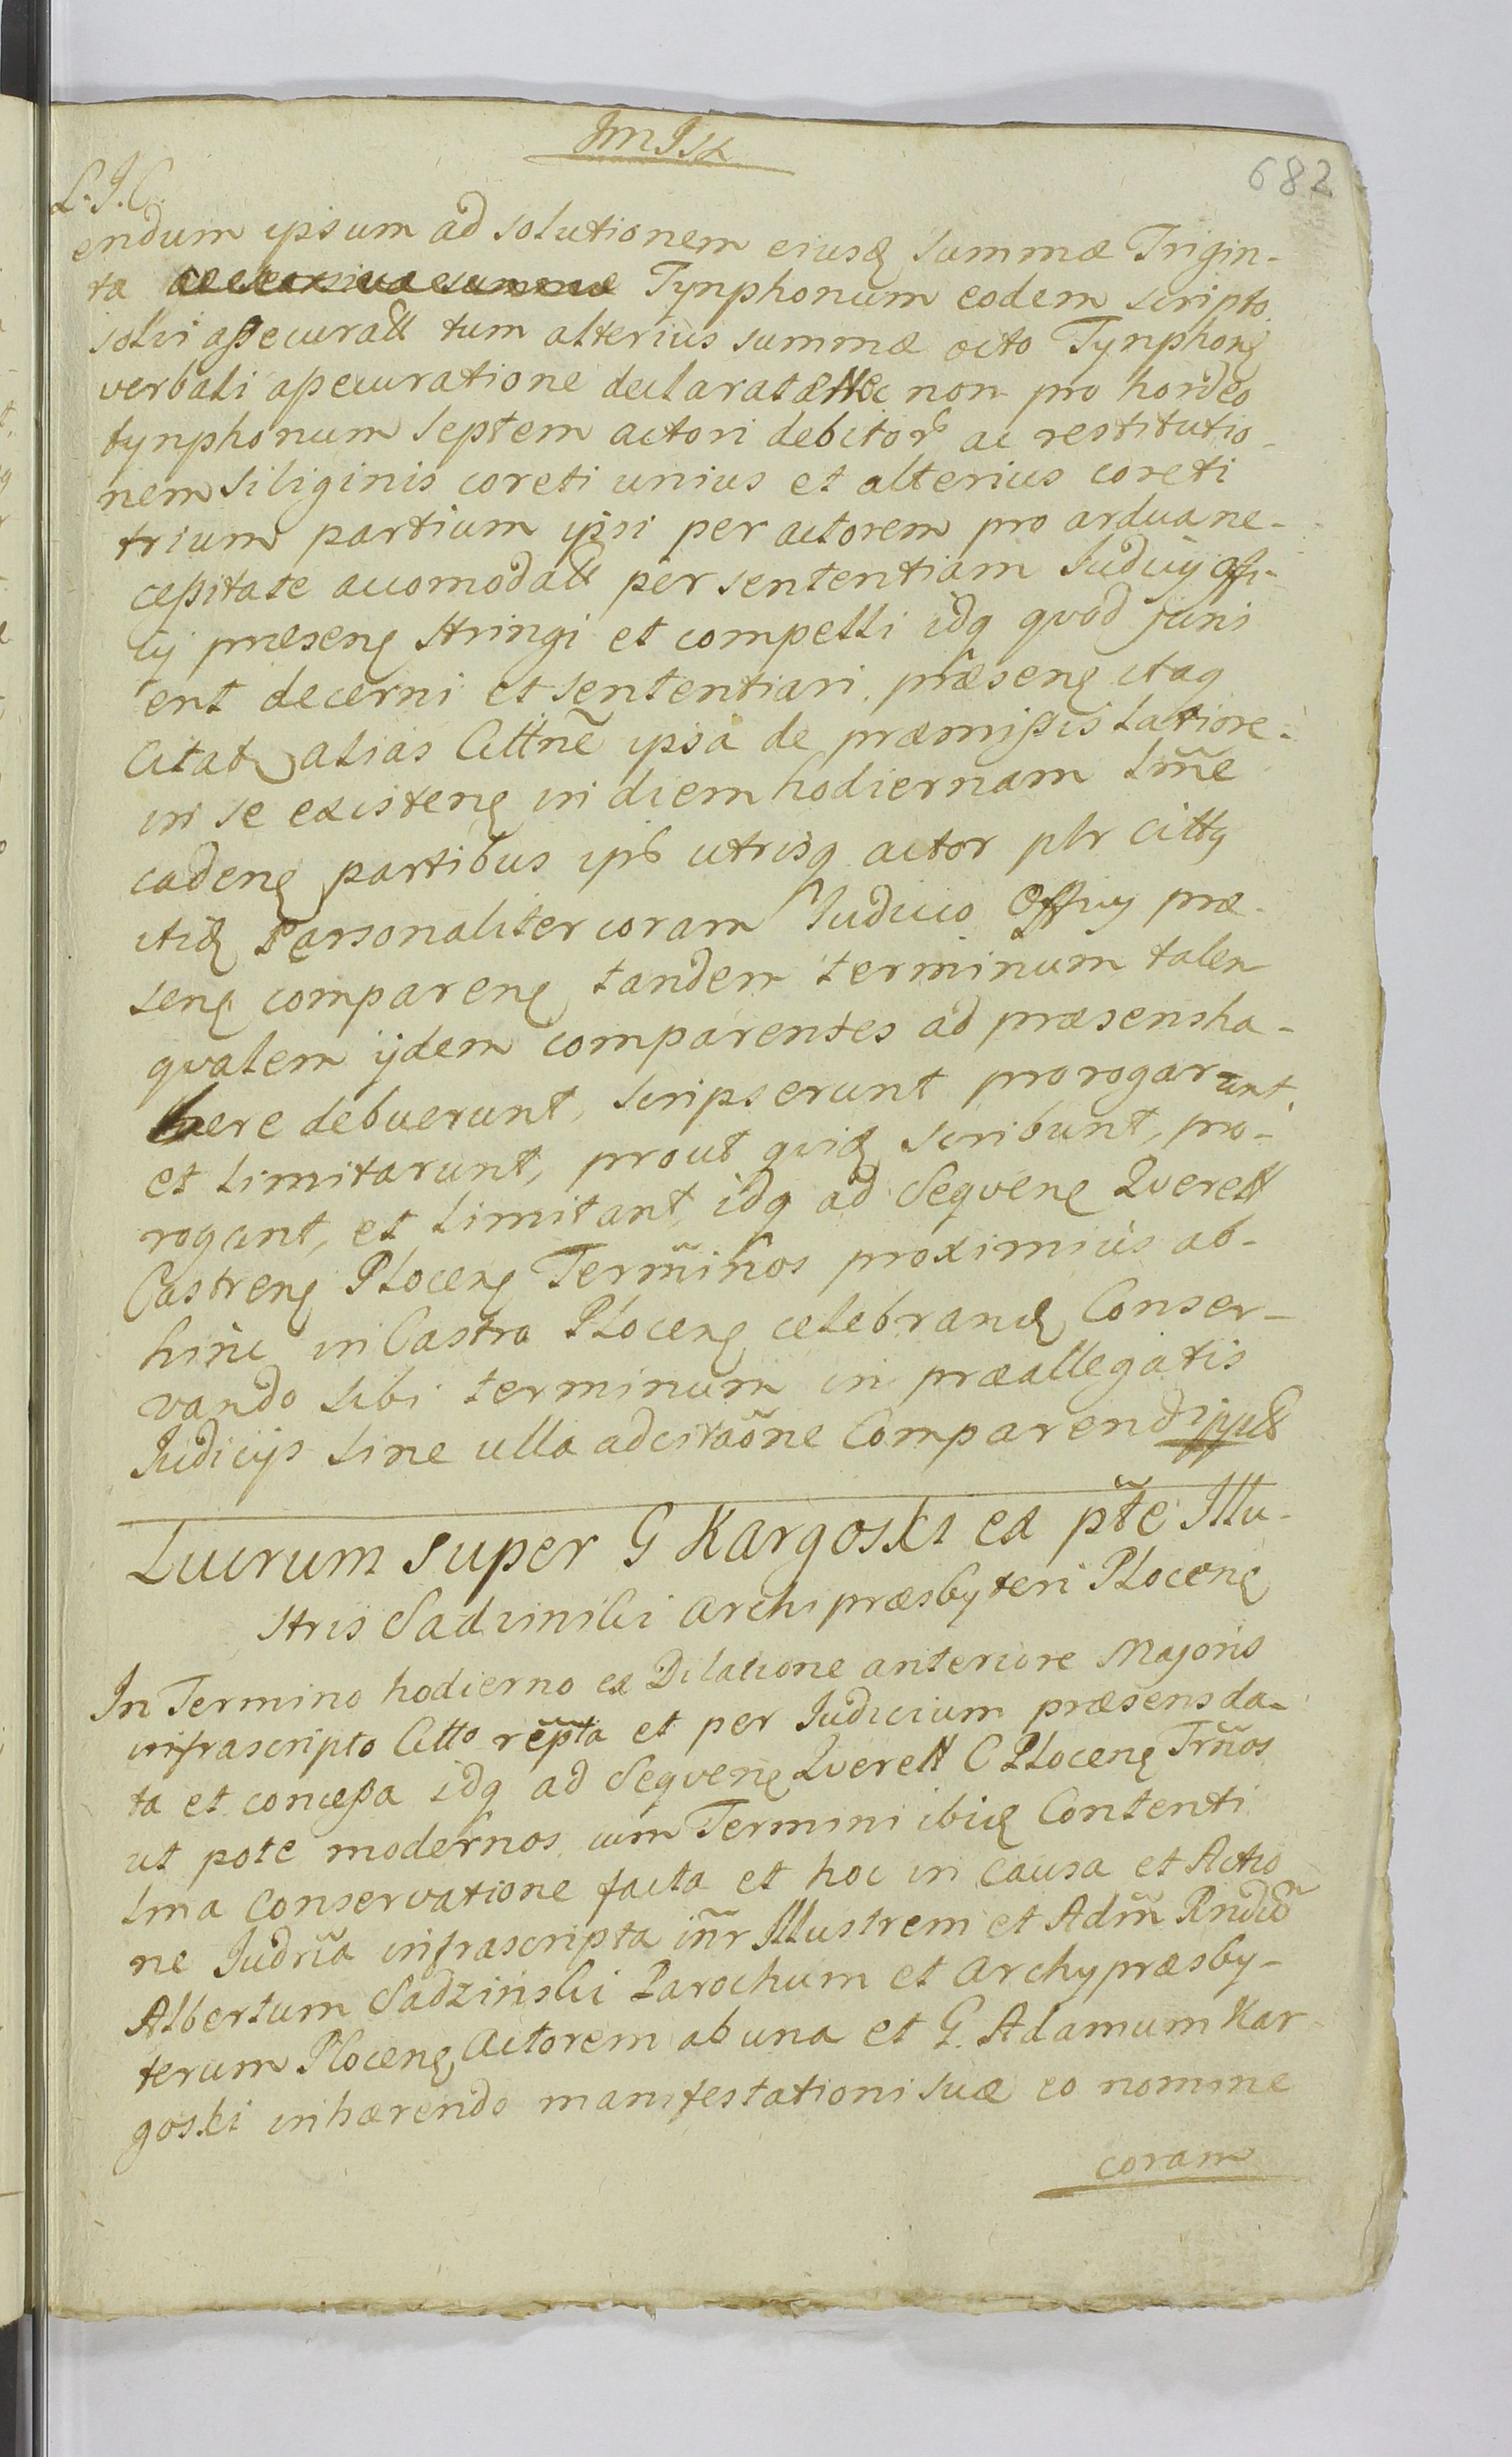 682
L. J. C.
endum ipsum ad solutionem eiusd summæ Trigin-
ta Tynphonum eodem scripto
solvi assecuratt tum alterius summæ octo Tynphonę
verbali assecuratione declaratæ Nec non pro hordeo
tynphonum Septem actori debitor ac restitutio-
nem siliginis coreti unius et alterius coreti
trium partium ipsi per actorem pro ardua ne-
cessitate accomodatt per sententiam Iudicij offi-
cij præsenę stringi et compelli idq quod juris
erit decerni et sententiari. præsenę itaq
Citatę alias Cittne ipsa de præmissis latiore
in se existenę in diem hodiernam lme
cadenę partibus ipis utrisq actor pltr citty
itid Personaliter coram Iudicio Officij præ-
senę comparenę tandem terminum talem
qualem ijdem comparentes ad præsens ha-
bere debuerunt, scripserunt prorogarunt,
et limitarunt, prout quid scribunt, pro-
rogant, et limitant, idq ad Sequenę Querell
Castrenę Plocenę Terminos proximius ab-
hinc in Castro Plocenę celebrand Conser-
vando sibi terminum in præallegatis
Iudicijs sine ulla adcitaone Comparendi
Lucrum super G Kargoski ex pte Illu-
stris Sadzinski Archipræsbyteri Plocenę
In Termino hodierno ex Dilatione anteriore Majoris
infrascripto Citto repta et per Iudicium præsens da-
ta et concessa idq ad Sequenę Querell C Plocenę Trnos
ut pote modernos cum Termini ibid Contenti
lma Conservatione facta et hoc in causa et Actio
ne Iudria infrascripta inr Illustrem et Adm Rndum
Albertum Sadzinski Parochum et Archypræsby-
terum Plocenę Actorem ab una et G. Adamum Kar-
goski inhærendo manifestationi suæ eo nomine
coram